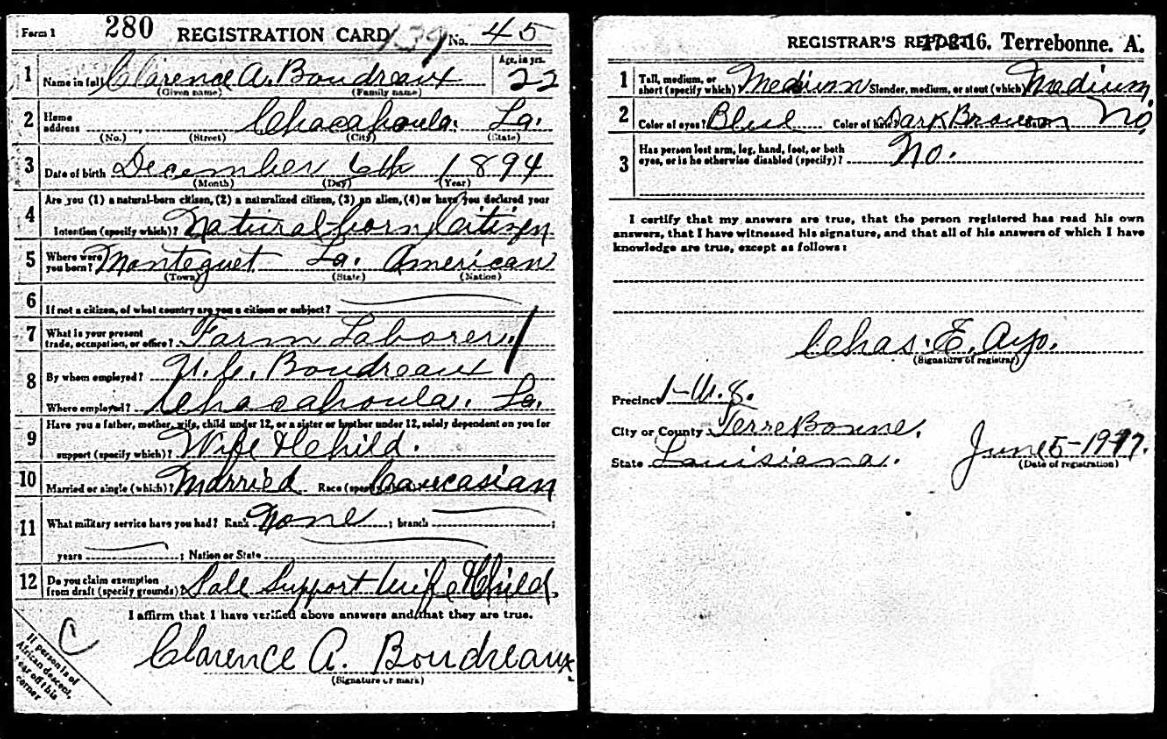 Form 1 280 REGISTRATION CARD 139 No. 45
1 Name in full Clarence A. Boudreaux Age, in yrs. 22
(Given name) (Family name)
2 Home address Chacahoula. La.
(No.) (Street) (City) (State)
3 Date of birth December 6th 1894
(Month) (Day) (Year)
4 Are you (1) a natural-born citizen, (2) a naturalized citizen, (3) an alien, (4) or have you declared your
intention (specify which)? Natural born Citizen
5 Where were you born? Monteguet La. American
(Town) (State) (Nation)
6 If not a citizen, of what country are you a citizen or subject?
7 What is your present trade, occupation, or office? Farm Laborer.
8 By whom employed? Boudreaux
Where employed? Chacahoula. La.
9 Have you a father, mother, wife, child under 12, or a sister or brother under 12, solely dependent on you for
support (specify which)? Wife & Child.
10 Married or single (which)? Married Race (specify which)? Caucasian
11 What military service have you had? Rank None ; branch ;
years ; Nation or State
12 Do you claim exemption from draft (specify grounds)? Sole Support Wife & Child
I affirm that I have verified above answers and that they are true.
C
Clarence A. Boudreaux
(Signature or mark)
If person is of
African descent,
tear off this
corner
REGISTRAR'S REPORT 17-2-16. Terrebonne. A.
1 Tall, medium, or short (specify which)? Medium Slender, medium, or stout (which)? Medium
2 Color of eyes? Blue Color of hair? Dark Brown No
3 Has person lost arm, leg, hand, foot, or both
eyes, or is he otherwise disabled (specify)? No.
I certify that my answers are true, that the person registered has read his own
answers, that I have witnessed his signature, and that all of his answers of which I have
knowledge are true, except as follows:
Chas. E. Ayo.
(Signature of registrar)
Precinct 1-W.8.
City or County TerreBonne.
State Louisiana. June 5-1917.
(Date of registration)